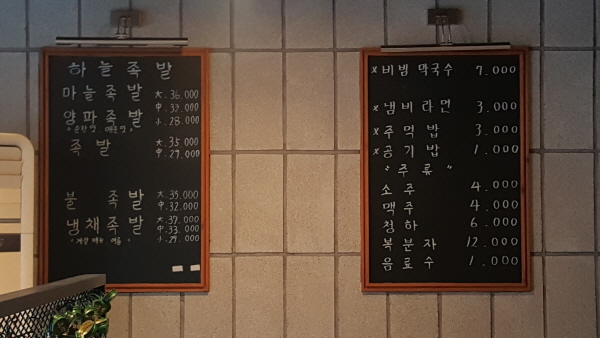 하늘족발
마늘족발 大. 36.000
中. 32.000
양파족발 小. 28.000
족발 大. 35.000
中. 29.000
불 족발 大. 35.000
中. 32.000
냉채족발 大. 37.000
中. 33.000
小. 29.000
x비빔 막국수 7.000
x냄비라면 3.000
x주먹밥 3.000
x공기밥 1.000
"주류"
소주 4.000
맥주 4.000
청하 6.000
복분자 12.000
음료수 1.000